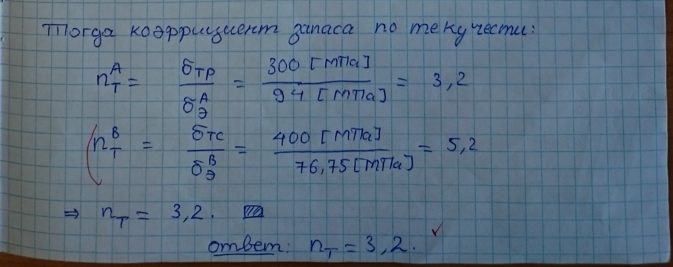 Тогда коэффициент запаса по текучести:
n_T^A = σ_тр / σ_Э^A = 300 [МПа] / 94 [МПа] = 3,2
n_T^B = σ_тс / σ_Э^B = 400 [МПа] / 76,75 [МПа] = 5,2
⇒ n_T = 3,2.
ответ: n_T = 3,2.